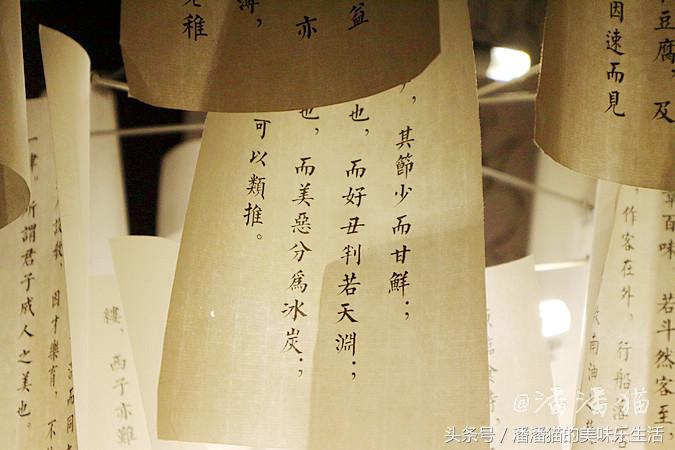 豆腐，及
因速而見
盆
亦
薄，
稚
，其節少而甘鮮；
也，而好丑判若天淵；
也，而美惡分爲冰炭；
可以類推。
百味 若斗然客至，
作客在外，行船
南油
縷，西子亦難
而同
設教，因才樂育，不
一律。所謂君子成人之美也。
@潘潘猫
头条号 / 潘潘猫的美味乐生活